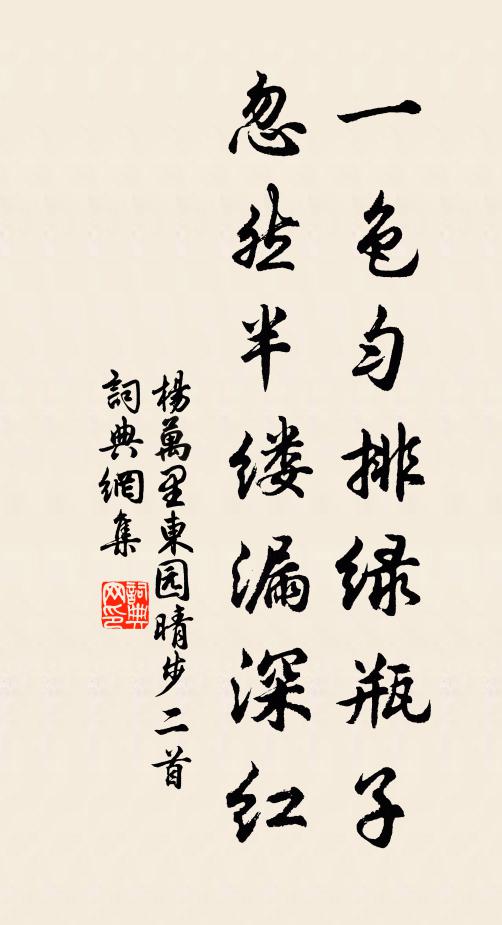 一色匀排绿瓶子
忽然半缕漏深红
楊萬里東园晴步二首
詞典網集
詞典网印